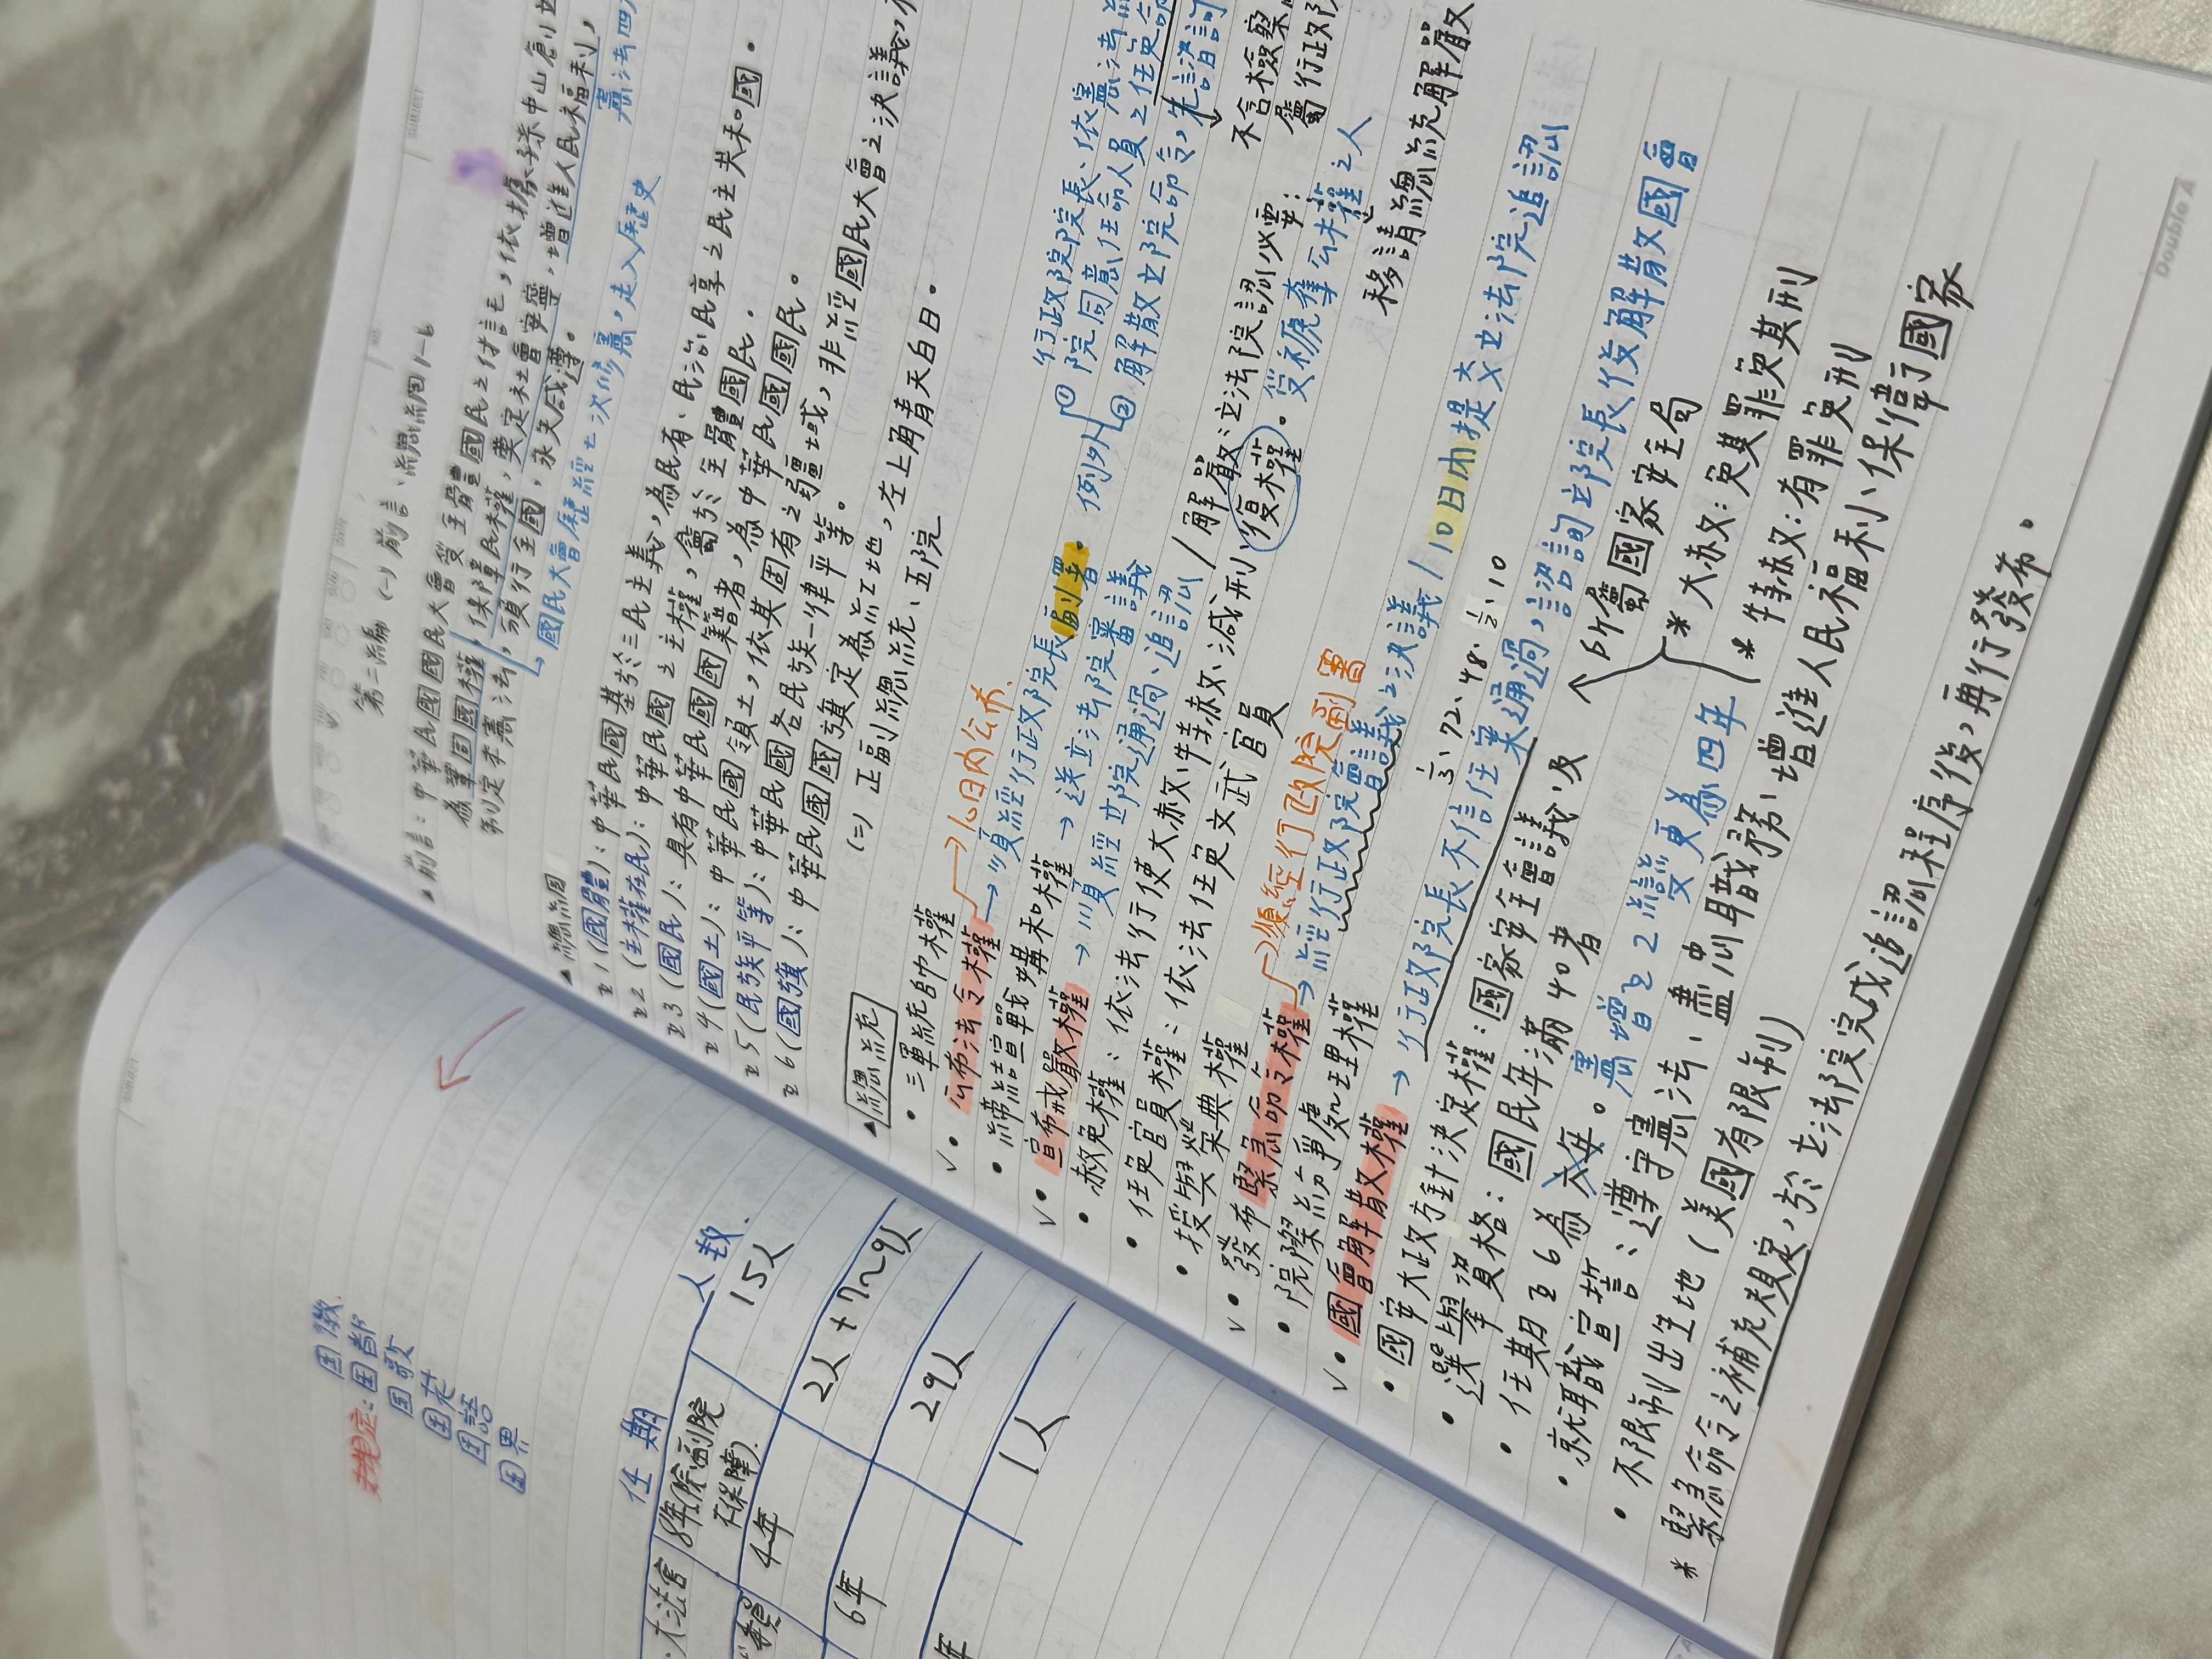 国徽
未規定:国都
国歌
国花
国語
国界
任期
人數
大法官
8年(除正副院
有保障)
15人
委員
4年
2人+7~9人
6年
29人
年
1人
第二編 (一)前言、總綱1-6
▲前言:中華民國國民大會受全體國民之付託,依據孫中山創立
為鞏固國權,保障民權,奠定社會安寧,增進人民福利,
制定本憲法,頒行全國,永矢咸遵。
↳國民大會歷經七次修憲,走入歷史
憲法四
▲總綱
§1(國體):中華民國基於三民主義,為民有、民治、民享之民主共和國。
§2(主權在民):中華民國之主權,屬於全體國民。
§3(國民):具有中華民國國籍者,為中華民國國民。
§4(國土):中華民國領土,依其固有之疆域,非經國民大會之決議,不
§5(民族平等):中華民國各民族一律平等。
§6(國旗):中華民國國旗定為紅地,左上角青天白日。
(二)正副總統、五院
▲總統
• 三軍統帥權
v• 公布法令權 →10日內公布
→須經行政院長副署。例外
①行政院院長、依憲法
院同意任命人員之任免命
②解散立院命令,先諮詢
• 締結宣戰媾和權 → 送立法院審議
v• 宣布戒嚴權 → 須經立院通過、追認/解嚴:立法院認必要:
不含檢察
屬行政院
• 赦免權:依法行使大赦、特赦、減刑、復權。受褫奪公權之人
• 任免官員權:依法任免文武官員
移請總統解嚴
• 授與榮典權
v• 發布緊急命令權 →須經行政院副署
→經行政院會議之決議/10日內提交立法院追認
• 院際紛爭處理權
v• 國會解散權 → 行政院長不信任案通過,諮詢立院長後解散國會
• 國安大政方針決定權:國家安全會議、及所屬國家安全局
• 選舉資格:國民年滿40者
• 任期§6為六年。憲增§2變更為四年
* 大赦:免其罪免其刑
* 特赦:有罪免刑
• 就職宣誓:遵守憲法、盡忠職務、增進人民福利、保衛國家
• 不限制出生地(美國有限制)
* 緊急命令之補充規定,於立法院完成追認程序後,再行發布。
Double A